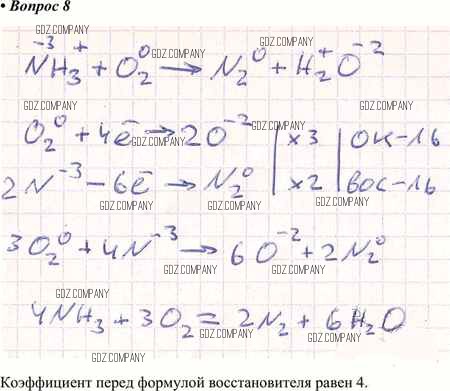 • Вопрос 8
GDZ.COMPANY
N⁻³H₃⁺ + O₂⁰ → N₂⁰ + H₂⁺O⁻²
O₂⁰ + 4ē → 2O⁻² | x3 | ок-ль
2N⁻³ - 6ē → N₂⁰ | x2 | вос-ль
3O₂⁰ + 4N⁻³ → 6O⁻² + 2N₂⁰
4NH₃ + 3O₂ = 2N₂ + 6H₂O
Коэффициент перед формулой восстановителя равен 4.